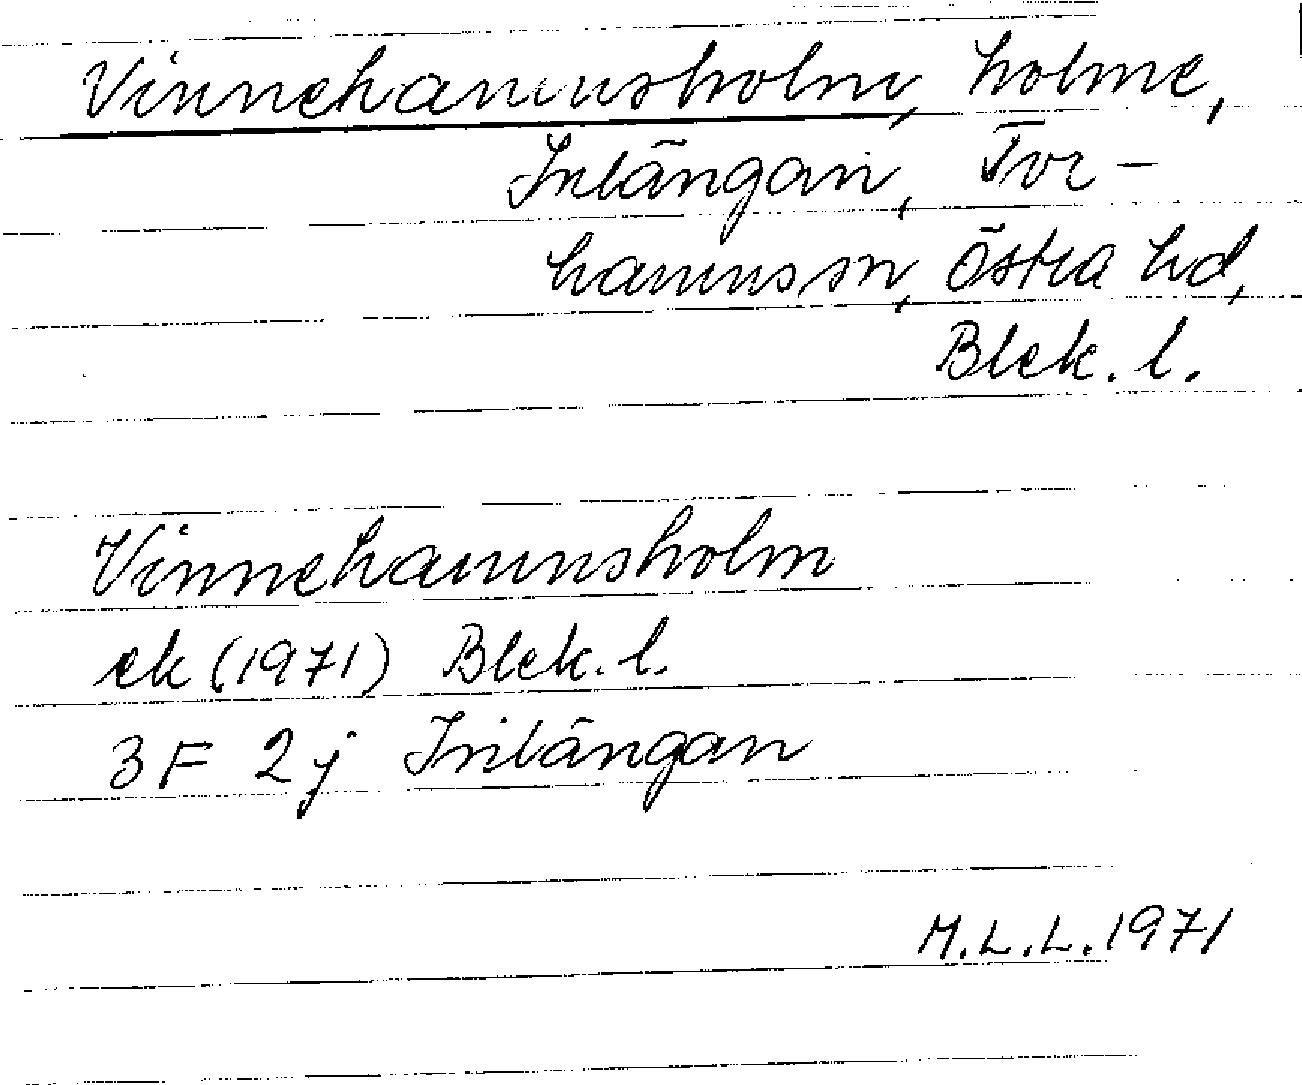 Vinnehamnsholm, holme,
Inlängan, Tor-
hamns sn, Östra hd,
Blek. l.
Vinnehamnsholm
ek (1971) Blek. l.
3F 2j Inlängan
M.L.L. 1971